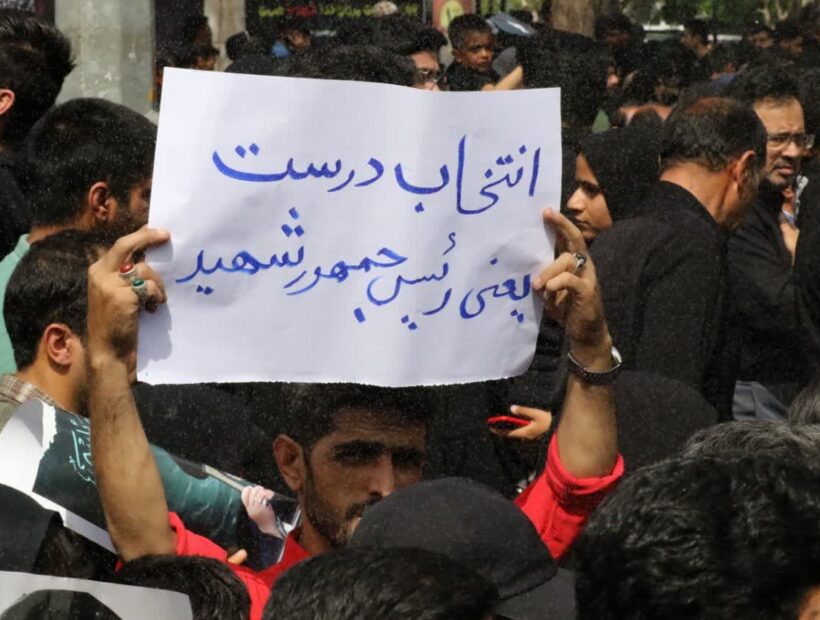 انتخاب درست
یعنی رئیس جمهور شهید